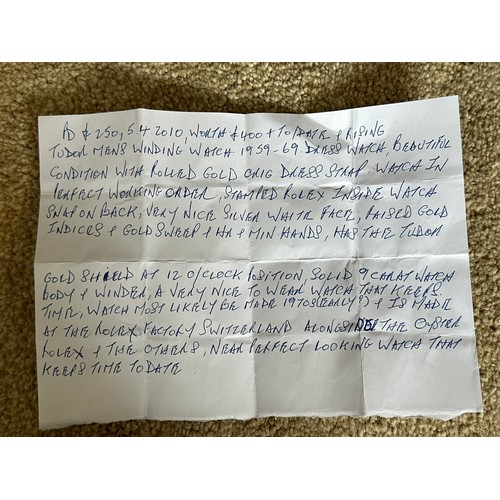 PD £250, 5.4 2010, WORTH £400 + TO/DATE & RISING
TUDOR MENS WINDING WATCH 1959-69 DRESS WATCH, BEAUTIFUL
CONDITION WITH ROLLED GOLD ORIG DRESS STRAP, WATCH IN
PERFECT WORKING ORDER, STAMPED ROLEX INSIDE WATCH
SNAP ON BACK, VERY NICE SILVER WHITE FACE, RAISED GOLD
INDICES & GOLD SWEEP & HR & MIN HANDS, HAS THE TUDOR
GOLD SHIELD AT 12 O/CLOCK POSITION, SOLID 9 CARAT WATCH
BODY & WINDER, A VERY NICE TO WEAR WATCH THAT KEEPS
TIME, WATCH MOST LIKELY BE MADE 1970S (EARLY?) & IS MADE
AT THE ROLEX FACTORY SWITZERLAND ALONGSIDE THE OYSTER
ROLEX & THE OTHERS, NEAR PERFECT LOOKING WATCH THAT
KEEPS TIME TO DATE